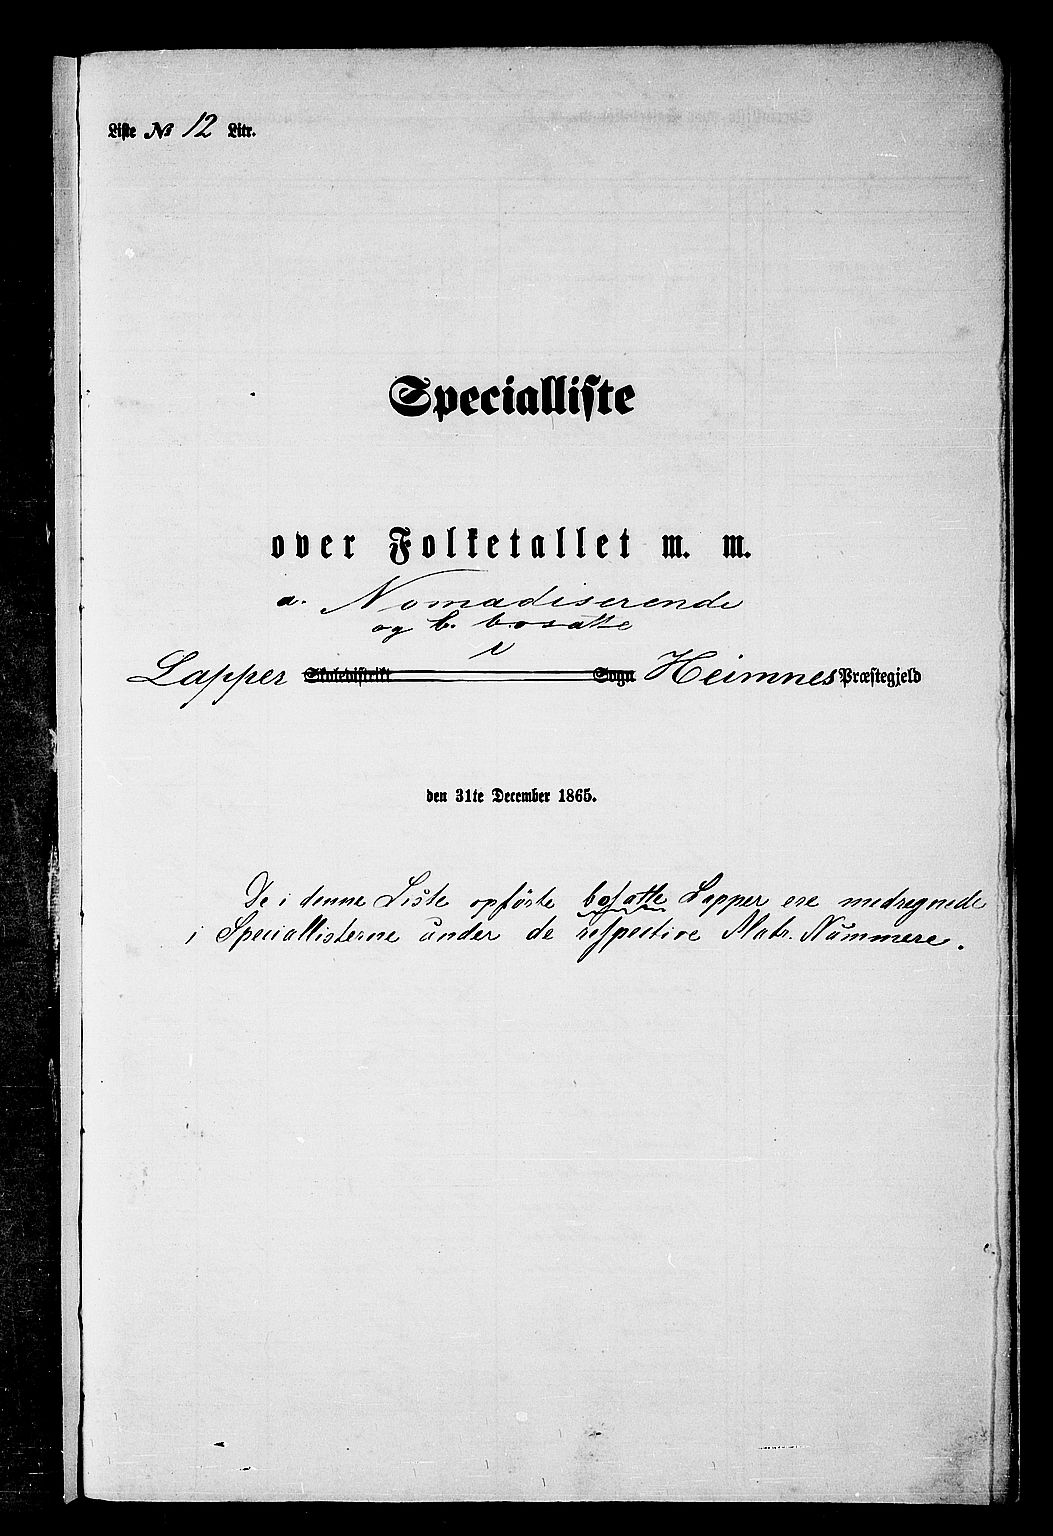 Liste No 12 Litr.
Specialliste
over Folketallet m. m.
a. Nomadiserende
og b. bosatte
i
Lapper Skoledistrikt Sogn Heimnes Præstegjeld
den 31te December 1865.
De i denne Liste opførte bosatte Lapper ere medregnede
i Speciallisterne under de respective Matr. Nummere.